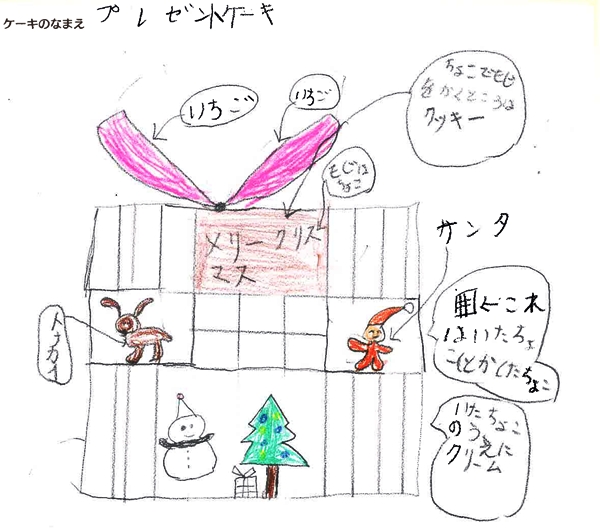 ケーキのなまえ
プレゼントケーキ
いちご
いちご
ちょこでもじ
をかくところは
クッキー
もじは
ちょこ
メリークリス
マス
サンタ
トナカイ
これ
はいたちょ
こ
ちょこ
いたちょこ
のうえに
クリーム